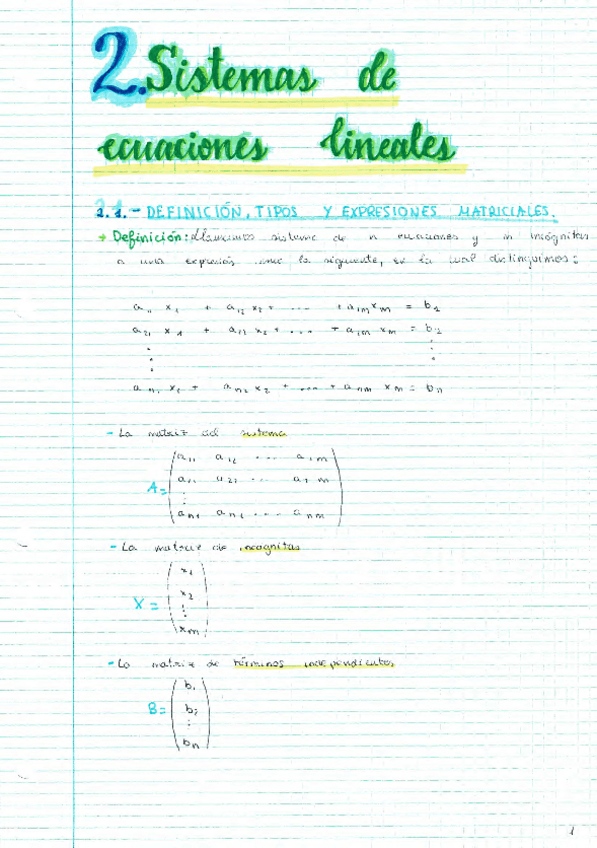 2. Sistemas de
ecuaciones lineales
2.1.- DEFINICIÓN, TIPOS Y EXPRESIONES MATRICIALES.
→ Definición: Llamamos sistema de n ecuaciones y m incógnitas
a una expresión como la siguiente, en la cual distinguimos:
a₁₁ x₁ + a₁₂ x₂ + ... + a₁m xm = b₁
a₂₁ x₁ + a₂₂ x₂ + ... + a₂m xm = b₂
⋮ ⋮
an₁ x₁ + an₂ x₂ + ... + anm xm = bn
- La matriz del sistema
a₁₁ a₁₂ ... a₁m
a₂₁ a₂₂ ... a₂m
A= ⋮
an₁ an₂ ... anm
- La matriz de incognitas
x₁
x₂
X = ⋮
xm
- La matriz de términos independientes
b₁
B= b₂
⋮
bn
1